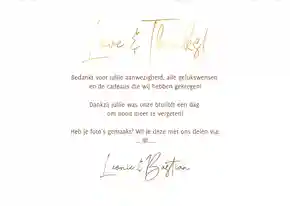 Love & Thanks!
Bedankt voor jullie aanwezigheid, alle gelukswensen
en de cadeaus die wij hebben gekregen!
Dankzij jullie was onze bruiloft een dag
om nooit meer te vergeten!
Heb je foto's gemaakt? Wil je deze met ons delen via
Leonie & Bastian